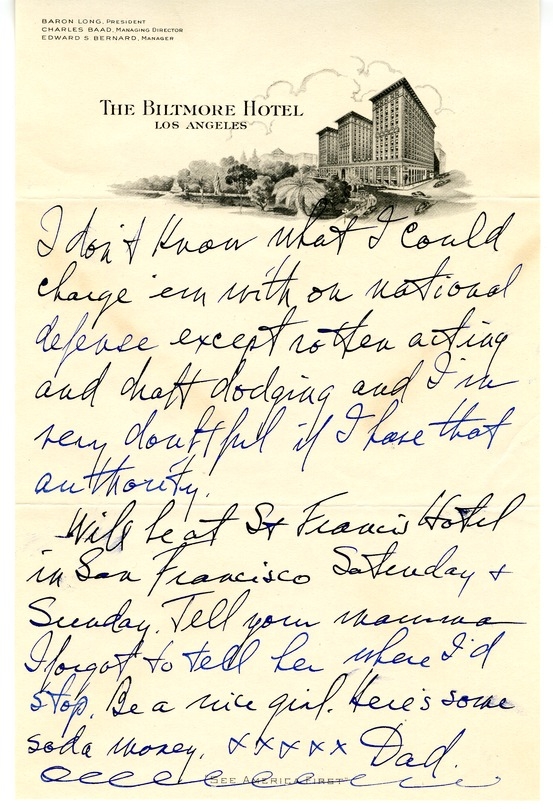 BARON LONG, PRESIDENT
CHARLES BAAD, MANAGING DIRECTOR
EDWARD S. BERNARD, MANAGER
THE BILTMORE HOTEL
LOS ANGELES
I don't know what I could
charge 'em with on national
defense except rotten acting
and draft dodging and I'm
very doubtful if I have that
authority.
Will be at St Francis Hotel
in San Francisco Saturday +
Sunday. Tell your mamma
I forgot to tell her where I'd
stop. Be a nice girl. Here's some
soda money. xxxxx Dad.
"SEE AMERICA FIRST"